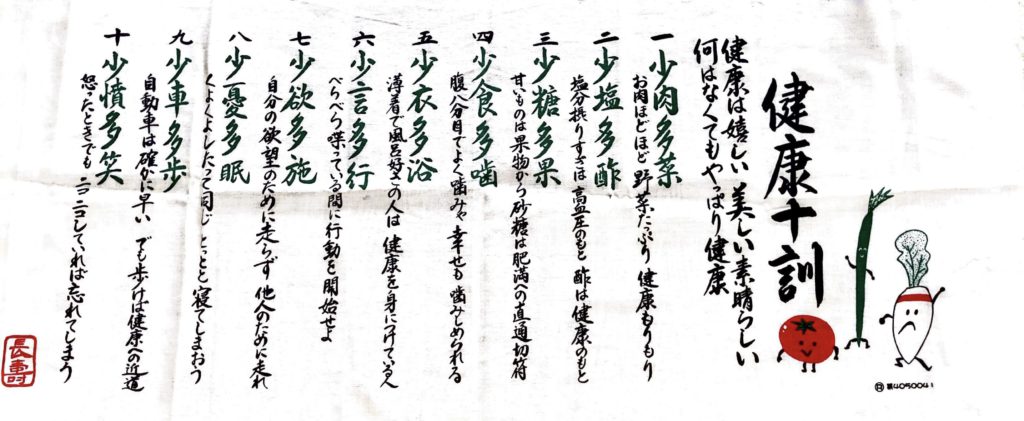 健康十訓
健康は嬉しい 美しい 素晴らしい
何はなくてもやっぱり健康
一 少肉多菜
お肉ほどほど 野菜たっぷり 健康もりもり
二 少塩多酢
塩分摂りすぎは 高血圧のもと 酢は健康のもと
三 少糖多果
甘いものは果物から 砂糖は肥満への直通切符
四 少食多噛
腹八分目でよく噛みゃ 幸せも噛みしめられる
五 少衣多浴
薄着で風呂好きの人は 健康を身につけている人
六 少言多行
べらべら喋っている間に行動を開始せよ
七 少欲多施
自分の欲望のために走らず 他人のために走れ
八 少憂多眠
くよくよしたって同じ とっとと寝てしまおう
九 少車多歩
自動車は確かに早い でも歩けば健康への近道
十 少憤多笑
怒ったときでも ニコニコしていれば忘れてしまう
長寿